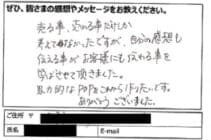 ぜひ、皆さまの感想やメッセージをお教えください。
売る事、売れる事だけしか
考えてなかったですが、自分の感想も
伝える事がお客様にも伝わる事を
学ばせて頂きました。
魅力的なPOPをこれから作りたいです。
ありがとうございました。
ご住所 〒
氏名
E-mail